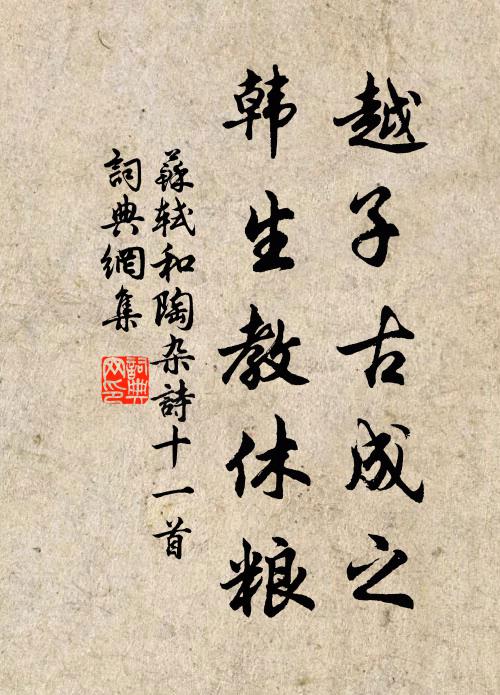 越子古成之
韩生教休粮
蘇軾和陶杂詩十一首
詞典網集
詞典網印